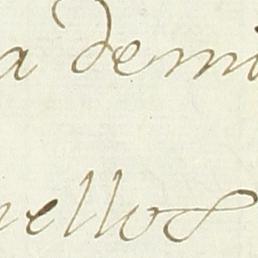 a demi
ellos